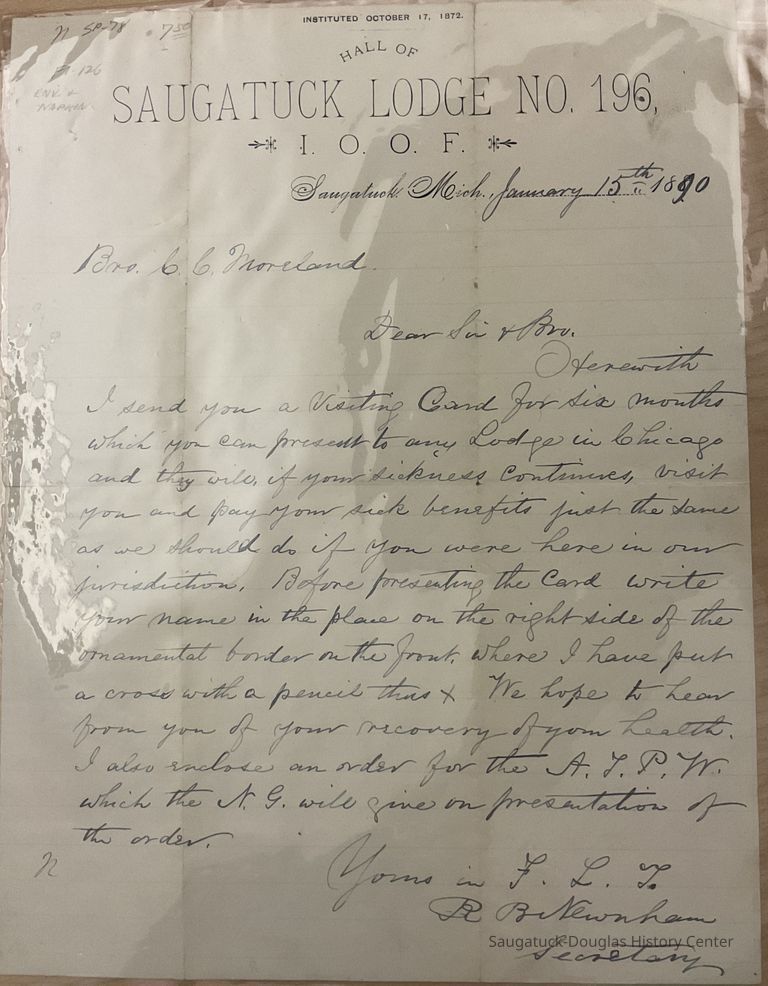 INSTITUTED OCTOBER 17, 1872.
n SP-78 . 750
126
ENV &
HALL OF
SAUGATUCK LODGE NO. 196,
I. O. O. F.
Saugatuck, Mich., January 15th 1890
Bro. C. C. Moreland.
Dear Sir & Bro.
Herewith
I send you a Visiting Card for six months
which you can present to any Lodge in Chicago
and they will, if your sickness continues, visit
you and pay your sick benefits just the same
as we should do if you were here in our
jurisdiction. Before presenting the Card write
your name in the place on the right side of the
ornamental border on the front, where I have put
a cross with a pencil thus x We hope to hear
from you of your recovery of your health.
I also enclose an order for the A. T. P. W.
which the N. G. will give on presentation of
the order.
n
Yours in F. L. T.
R B Newnham
Saugatuck-Douglas History Center
Secretary